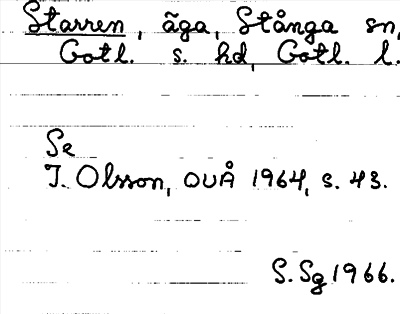 Starren, äga, Stånga sn,
Gotl. s. hd, Gotl. l.
Se
I. Olsson, OUÅ 1964, s. 43.
S. Sg 1966.